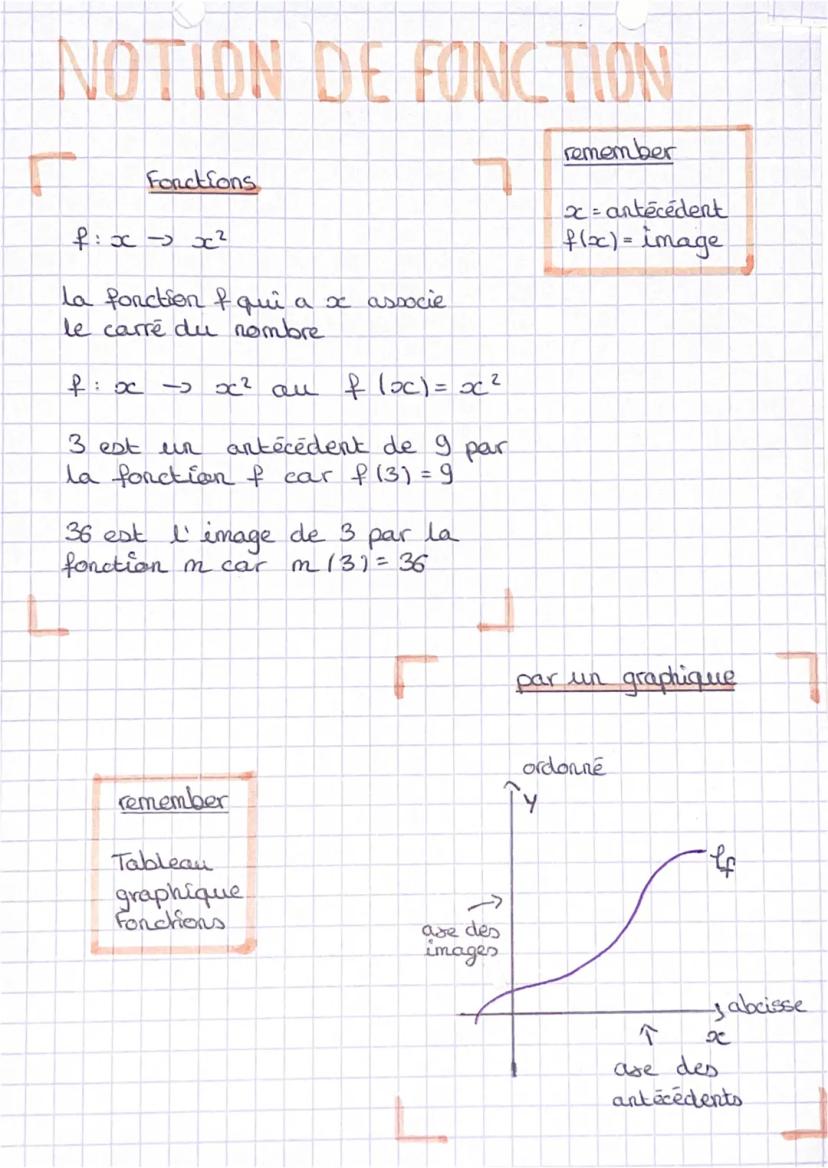 NOTION DE FONCTION
Fonctions
f : x → x²
la fonction f qui a x associe
le carré du nombre
f : x → x² au f (x) = x²
3 est un antécédent de 9 par
la fonction f car f (3) = 9
36 est l'image de 3 par la
fonction m car m (3) = 36
remember
x = antécédent
f(x) = image
par un graphique
ordonné
y
axe des
images
abcisse
x
axe des
antécédents
remember
Tableau
graphique
Fonctions